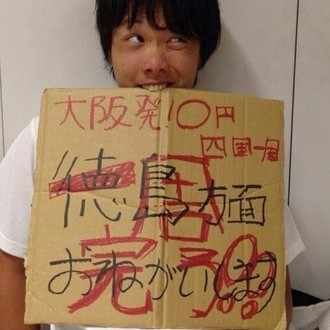 大阪発!0円
四国一周
徳島方面
おねがいします
一周
完了!!